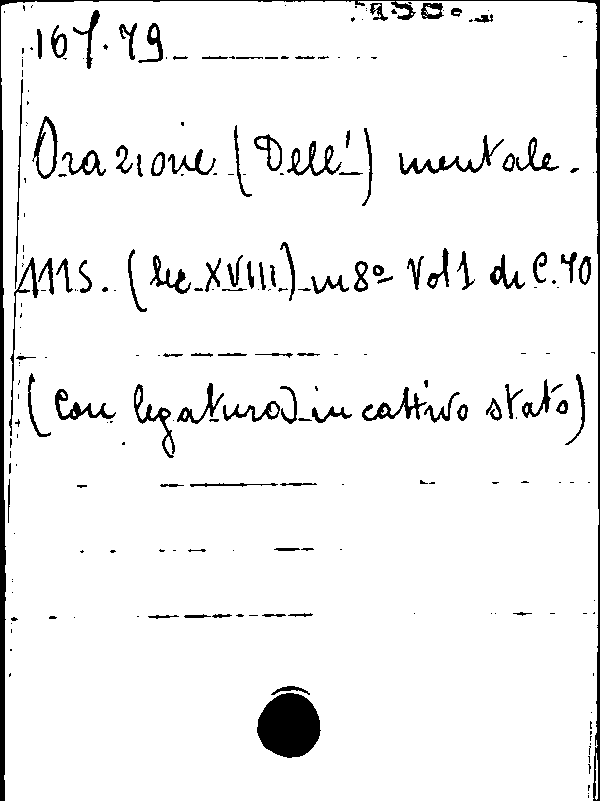 167.79
Orazione (Dell') mentale.
MS. (Sec. XVIII) in 8º Vol 1 di C. 70
(Con legatura in cattivo stato)